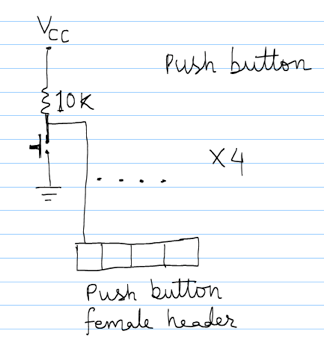 VCC
Push button
10K
X4
Push button
female header